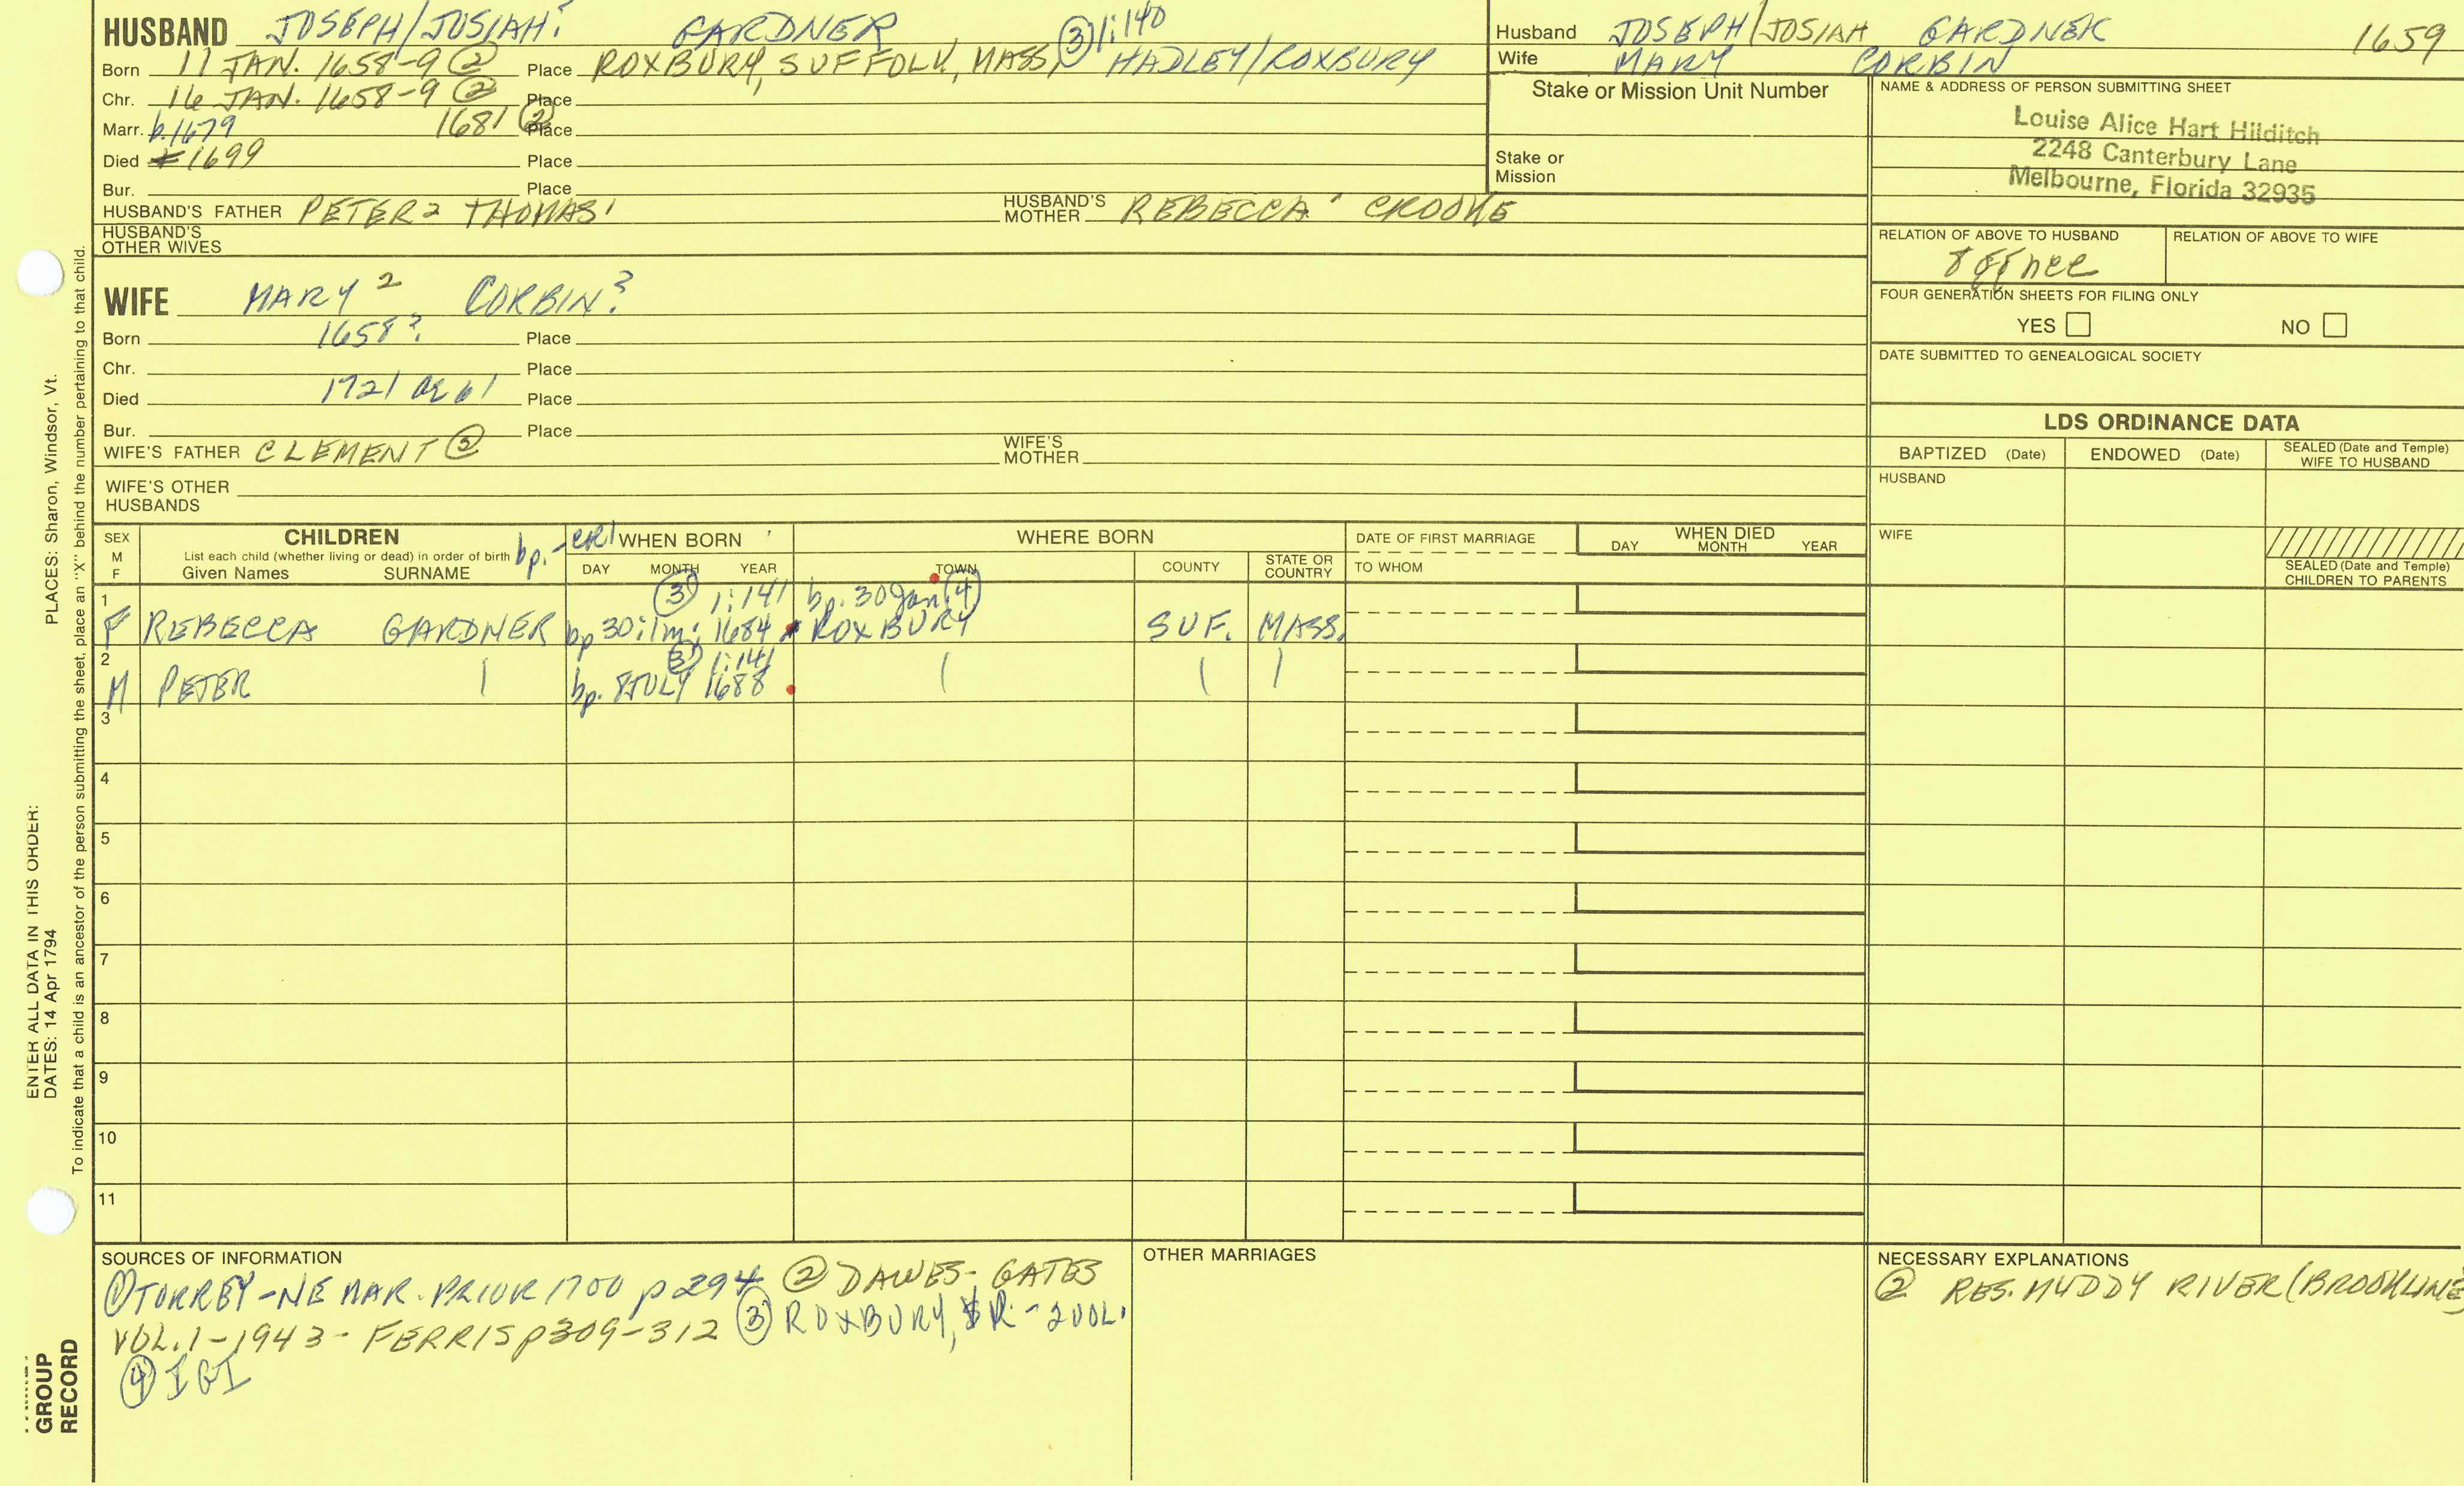 HUSBAND JOSEPH/JOSIAH GARDNER ③ 1:140
Born 11 JAN. 1658-9 ② Place ROXBURY, SUFFOLK, MASS, HADLEY/ROXBURY
Chr. 16 JAN. 1658-9 ② Place
Marr. b.1679 1681 ② Place
Died 1699 Place
Bur. Place
HUSBAND'S FATHER PETER2 THOMAS1 HUSBAND'S MOTHER REBECCA CROOKE
HUSBAND'S OTHER WIVES
WIFE MARY 2 CORBIN?
Born 1658? Place
Chr. Place
Died 1721 or 61 Place
Bur. Place
WIFE'S FATHER CLEMENT WIFE'S MOTHER
WIFE'S OTHER HUSBANDS
Husband JOSEPH/JOSIAH GARDNER 1659
Wife MARY CORBIN
Stake or Mission Unit Number
Stake or Mission
NAME & ADDRESS OF PERSON SUBMITTING SHEET
Louise Alice Hart Hilditch
2248 Canterbury Lane
Melbourne, Florida 32935
RELATION OF ABOVE TO HUSBAND RELATION OF ABOVE TO WIFE
FOUR GENERATION SHEETS FOR FILING ONLY
YES NO
DATE SUBMITTED TO GENEALOGICAL SOCIETY
LDS ORDINANCE DATA
BAPTIZED (Date) ENDOWED (Date) SEALED (Date and Temple) WIFE TO HUSBAND
HUSBAND
WIFE
SEALED (Date and Temple) CHILDREN TO PARENTS
SEX M F
CHILDREN
List each child (whether living or dead) in order of birth
Given Names SURNAME
bp.
WHEN BORN
DAY MONTH YEAR
WHERE BORN
TOWN COUNTY STATE OR COUNTRY
DATE OF FIRST MARRIAGE
TO WHOM
WHEN DIED
DAY MONTH YEAR
③ 1:141 bp. 30 Jan ④
1 F REBECCA GARDNER bp 30:1m: 1684 ROXBURY SUF. MASS.
③ 1:141
2 M PETER | bp. 8 JULY 1688 | | |
3
4
5
6
7
8
9
10
11
SOURCES OF INFORMATION
① TORREY-NE MAR. PRIOR 1700 p294 ② DAWES-GATES
VOL.1-1943- FERRIS p309-312 ③ ROXBURY, R.-2VOL.
④ IGI
OTHER MARRIAGES
NECESSARY EXPLANATIONS
② RES. MUDDY RIVER (BROOKLINE)
PLACES: Sharon, Windsor, Vt.
ENTER ALL DATA IN THIS ORDER:
DATES: 14 Apr 1794
To indicate that a child is an ancestor of the person submitting the sheet, place an "X" behind the number pertaining to that child.
GROUP
RECORD